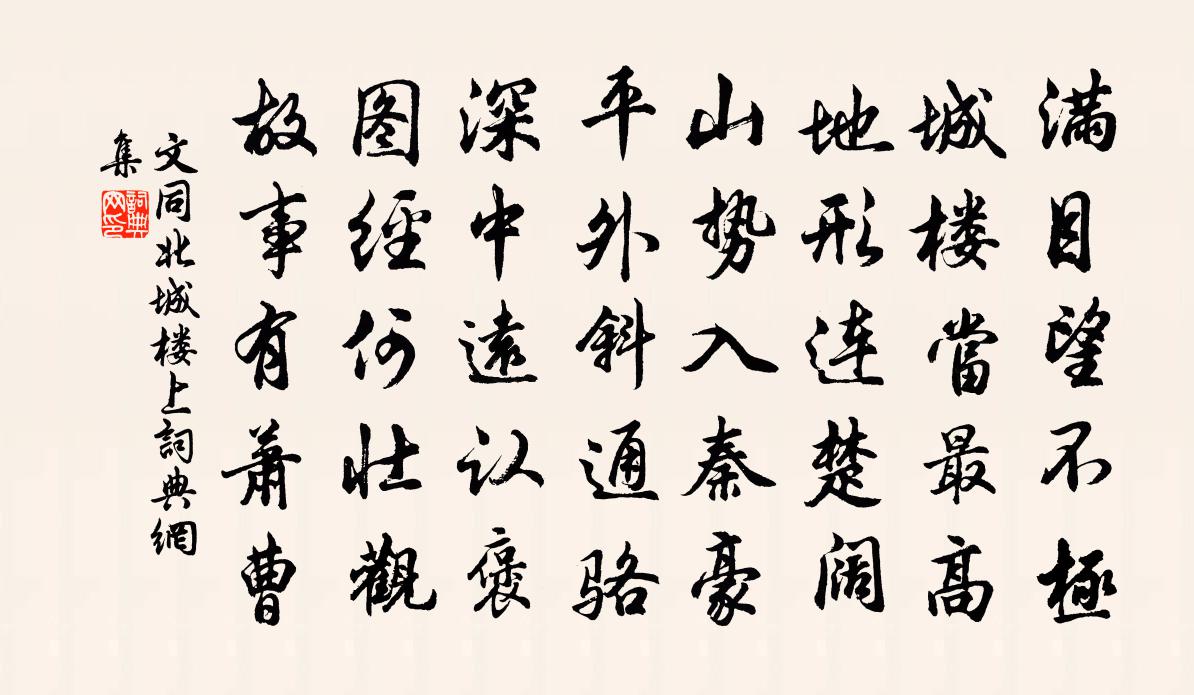 满目望不極
城楼當最高
地形连楚阔
山势入秦豪
平外斜通骆
深中遠认褒
图經何壮觀
故事有萧曹
文同北城楼上詞典網
集
詞典
网印